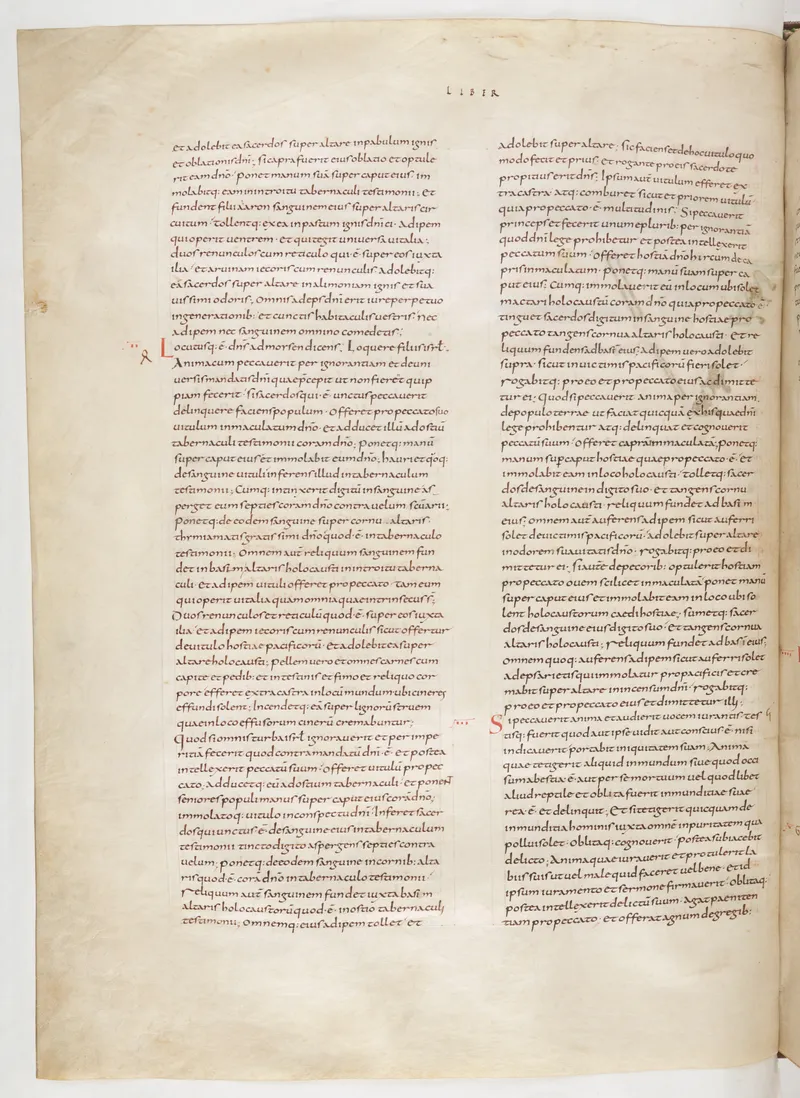 LIBER
et adolebit ea sacerdos super altare in pabulum ignis
et oblationis dñi; si capra fuerit eius oblatio et optule
rit eam dño · ponet manum suã super caput eius im
molabitq: eam in introitu tabernaculi testimonii; Et
fundent filii aaron sanguinem eius super altaris cir
cuitum · tollentq: ex ea in pastum ignis dñici · Adipem
qui operit uentrem · et qui tegit uniuersa uitalia;
duos renunculos cum reticulo qui · ẽ · super eos iuxta
ilia · et aruinam iecoris cum renunculis Adolebitq:
ea sacerdos super altare in alimoniam ignis et sua
uissimi odoris; Omnis adeps dñi erit iure perpetuo
in generationib: et cunctis habitaculis uestris; nec
adipem nec sanguinem omnino comedetis;
Locutusq: · ẽ · dñs ad mosen dicens; Loquere filiis isrl ·
Anima cum peccauerit per ignorantiam et de uni
uersis mandatis dñi quae pręcepit ut non fierent quip
piam fecerit · si sacerdos qui · ẽ · unctus peccauerit
delinquere faciens populum · Offeret pro peccato suo
uitulum immaculatum dño · et adducet illũ ad ostiũ
tabernaculi testimonii coram dño; ponetq: manũ
super caput eius et immolabit eum dño; hauriet qoq:
de sanguine uituli inferens illud in tabernaculum
testimonii; Cumq: intinxerit digitũ in sanguine as
perget eum septies coram dño contra uelum sc̃uarii;
Ponetq: de eodem sanguine super cornu · Altaris
thymiamatis gratissimi dño quod · ẽ · in tabernaculo
testimonii; Omnem aut̃ reliquum sanguinem fun
det in basim altaris holocausti in introitu taberna
culi · et adipem uituli offeret pro peccato · tam eum
qui operit uitalia quam omnia quae intrinsecus s̃;
Duos renunculos et reticulũ quod · ẽ · super eos iuxta
ilia · et adipem iecoris cum renunculis sicut offertur
de uitulo hostiae pacificorũ · et adolebit ea super
altare holocausti; pellem uero et omnes carnes cum
capite et pedib: et intestinis et fimo et reliquo cor
pore efferet extra castra in locũ mundum ubi cineres
effundi solent; Incendetq: ea super lignorũ struem
quae in loco effusorum cinerũ cremabuntur;
Quod si omnis turba isrl ignorauerit et per impe
ritiã fecerit quod contra mandatũ dñi · ẽ · et postea
intellexerit peccatũ suum · offeret uitulũ pro pec
cato · Adducetq: eũ ad ostium tabernaculi · et ponent
seniores populi manus super caput eius corã dño;
immolatoq: uitulo in conspectu dñi · Inferet sacer
dos qui unctus · ẽ · de sanguine eius in tabernaculum
testimonii tincto digito aspergens septies contra
uelum; ponetq: de eodem sanguine in cornib: alta
ris quod · ẽ · corã dño in tabernaculo testimonii ·
Reliquum aut̃ sanguinem fundet iuxta basim
altaris holocaustorũ quod · ẽ · in ostio tabernaculi
testimonii; Omnemq: eius adipem tollet · et
adolebit super altare; sic faciens et de hoc uitulo quo
modo fecit et prius · et rogante pro eis sacerdote
propitius erit dñs; Ipsum aut̃ uitulum efferet ex
tra castra · Atq: comburet sicut et priorem uitulũ
quia pro peccato · ẽ · multitudinis; Si peccauerit
princeps et fecerit unum e plurib: per ignorantiã
quod dñi lege prohibetur · et postea intellexerit
peccatum suum · offeret hostiã dño hircum de ca
pris inmaculatum · ponetq: manũ suam super ca
put eius; Cumq: immolauerit eũ in locum ubi solet
mactari holocaustũ coram dño quia pro peccato · ẽ ·
tinguet sacerdos digitum in sanguine hostiae pro
peccato tangens cornua altaris holocausti · et re
liquum fundens ad basĩ eius; Adipem uero adolebit
supra · sicut in uictimis pacificorũ fieri solet ·
rogabitq: pro eo et pro peccato eius ac dimitte
tur ei; Quod si peccauerit anima per ignorantiam
de populo terrae ut faciat quicquã ex his quae dñi
lege prohibentur atq: delinquat · et cognouerit
peccatũ suum · offeret caprã immaculatã; ponetq:
manum sup caput hostiae quae pro peccato · ẽ · et
immolabit eam in loco holocausti · tolletq: sacer
dos de sanguine in digito suo · et tangens cornu
altaris holocausti · reliquum fundet ad basim
eius; omnem aut̃ auferens adipem sicut auferri
solet de uictimis pacificorũ · Adolebit super altare
in odorem suauitatis dño · rogabitq: pro eo et di
mittetur ei; sin aut̃ de pecorib: optulerit hostiam
pro peccato ouem scilicet inmaculatã ponet manũ
super caput eius et immolabit eam in loco ubi so
lent holocaustorum caedi hostiae; sumetq: sacer
dos de sanguine eius digito suo · et tangens cornua
altaris holocausti; reliquum fundet ad basĩ eius;
omnem quoq: auferens adipem sicut auferri solet
adeps arietis qui immolatur pro pacificis et cre
mabit super altare in incensum dñi · rogabitq:
pro eo et pro peccato eius et dimittetur illi;
Si peccauerit anima et audierit uocem iurantis tes
tisq: fuerit quod aut ipse uidit aut conscius · ẽ · nisi
indicauerit portabit iniquitatem suam; Anima
quae tetigerit aliquid immundum siue quod occi
sum a bestia · ẽ · aut per se mortuum uel quodlibet
aliud reptile et oblita fuerit inmunditiae suae
rea · ẽ · et deliquit; Et si tetigerit quicquam de
inmunditia hominis iuxta omnẽ inpuritatem qua
pollui solet · oblitaq: cognouerit · postea subiacebit
delicto; Anima quae iurauerit et protulerit la
biis suis ut uel male quid faceret uel bene · et id
ipsum iuramento et sermone firmauerit · oblitaq:
postea intellexerit delictũ suum · Agat paeniten
tiam pro peccato · et offerat agnum de gregib: